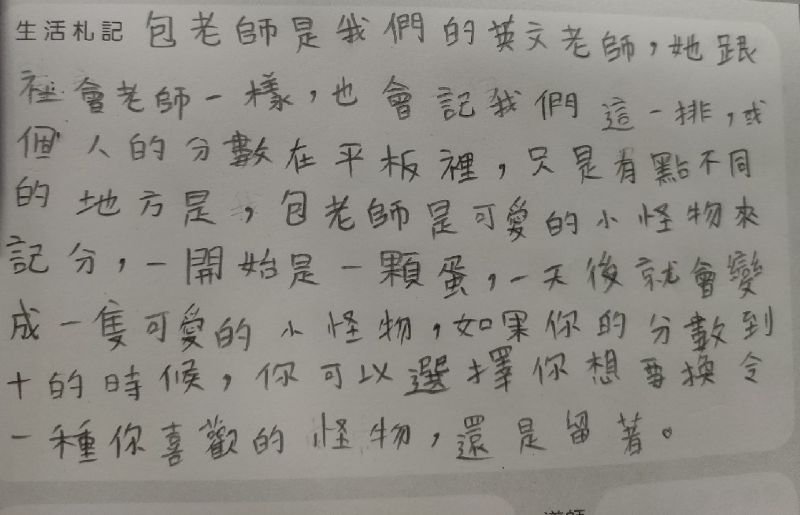 生活札記 包老師是我們的英文老師，她跟
社會老師一樣，也會記我們這一排，或
個人的分數在平板裡，只是有點不同
的地方是，包老師是可愛的小怪物來
記分，一開始是一顆蛋，一天後就會變
成一隻可愛的小怪物，如果你的分數到
十的時候，你可以選擇你想要換令
一種你喜歡的怪物，還是留著。